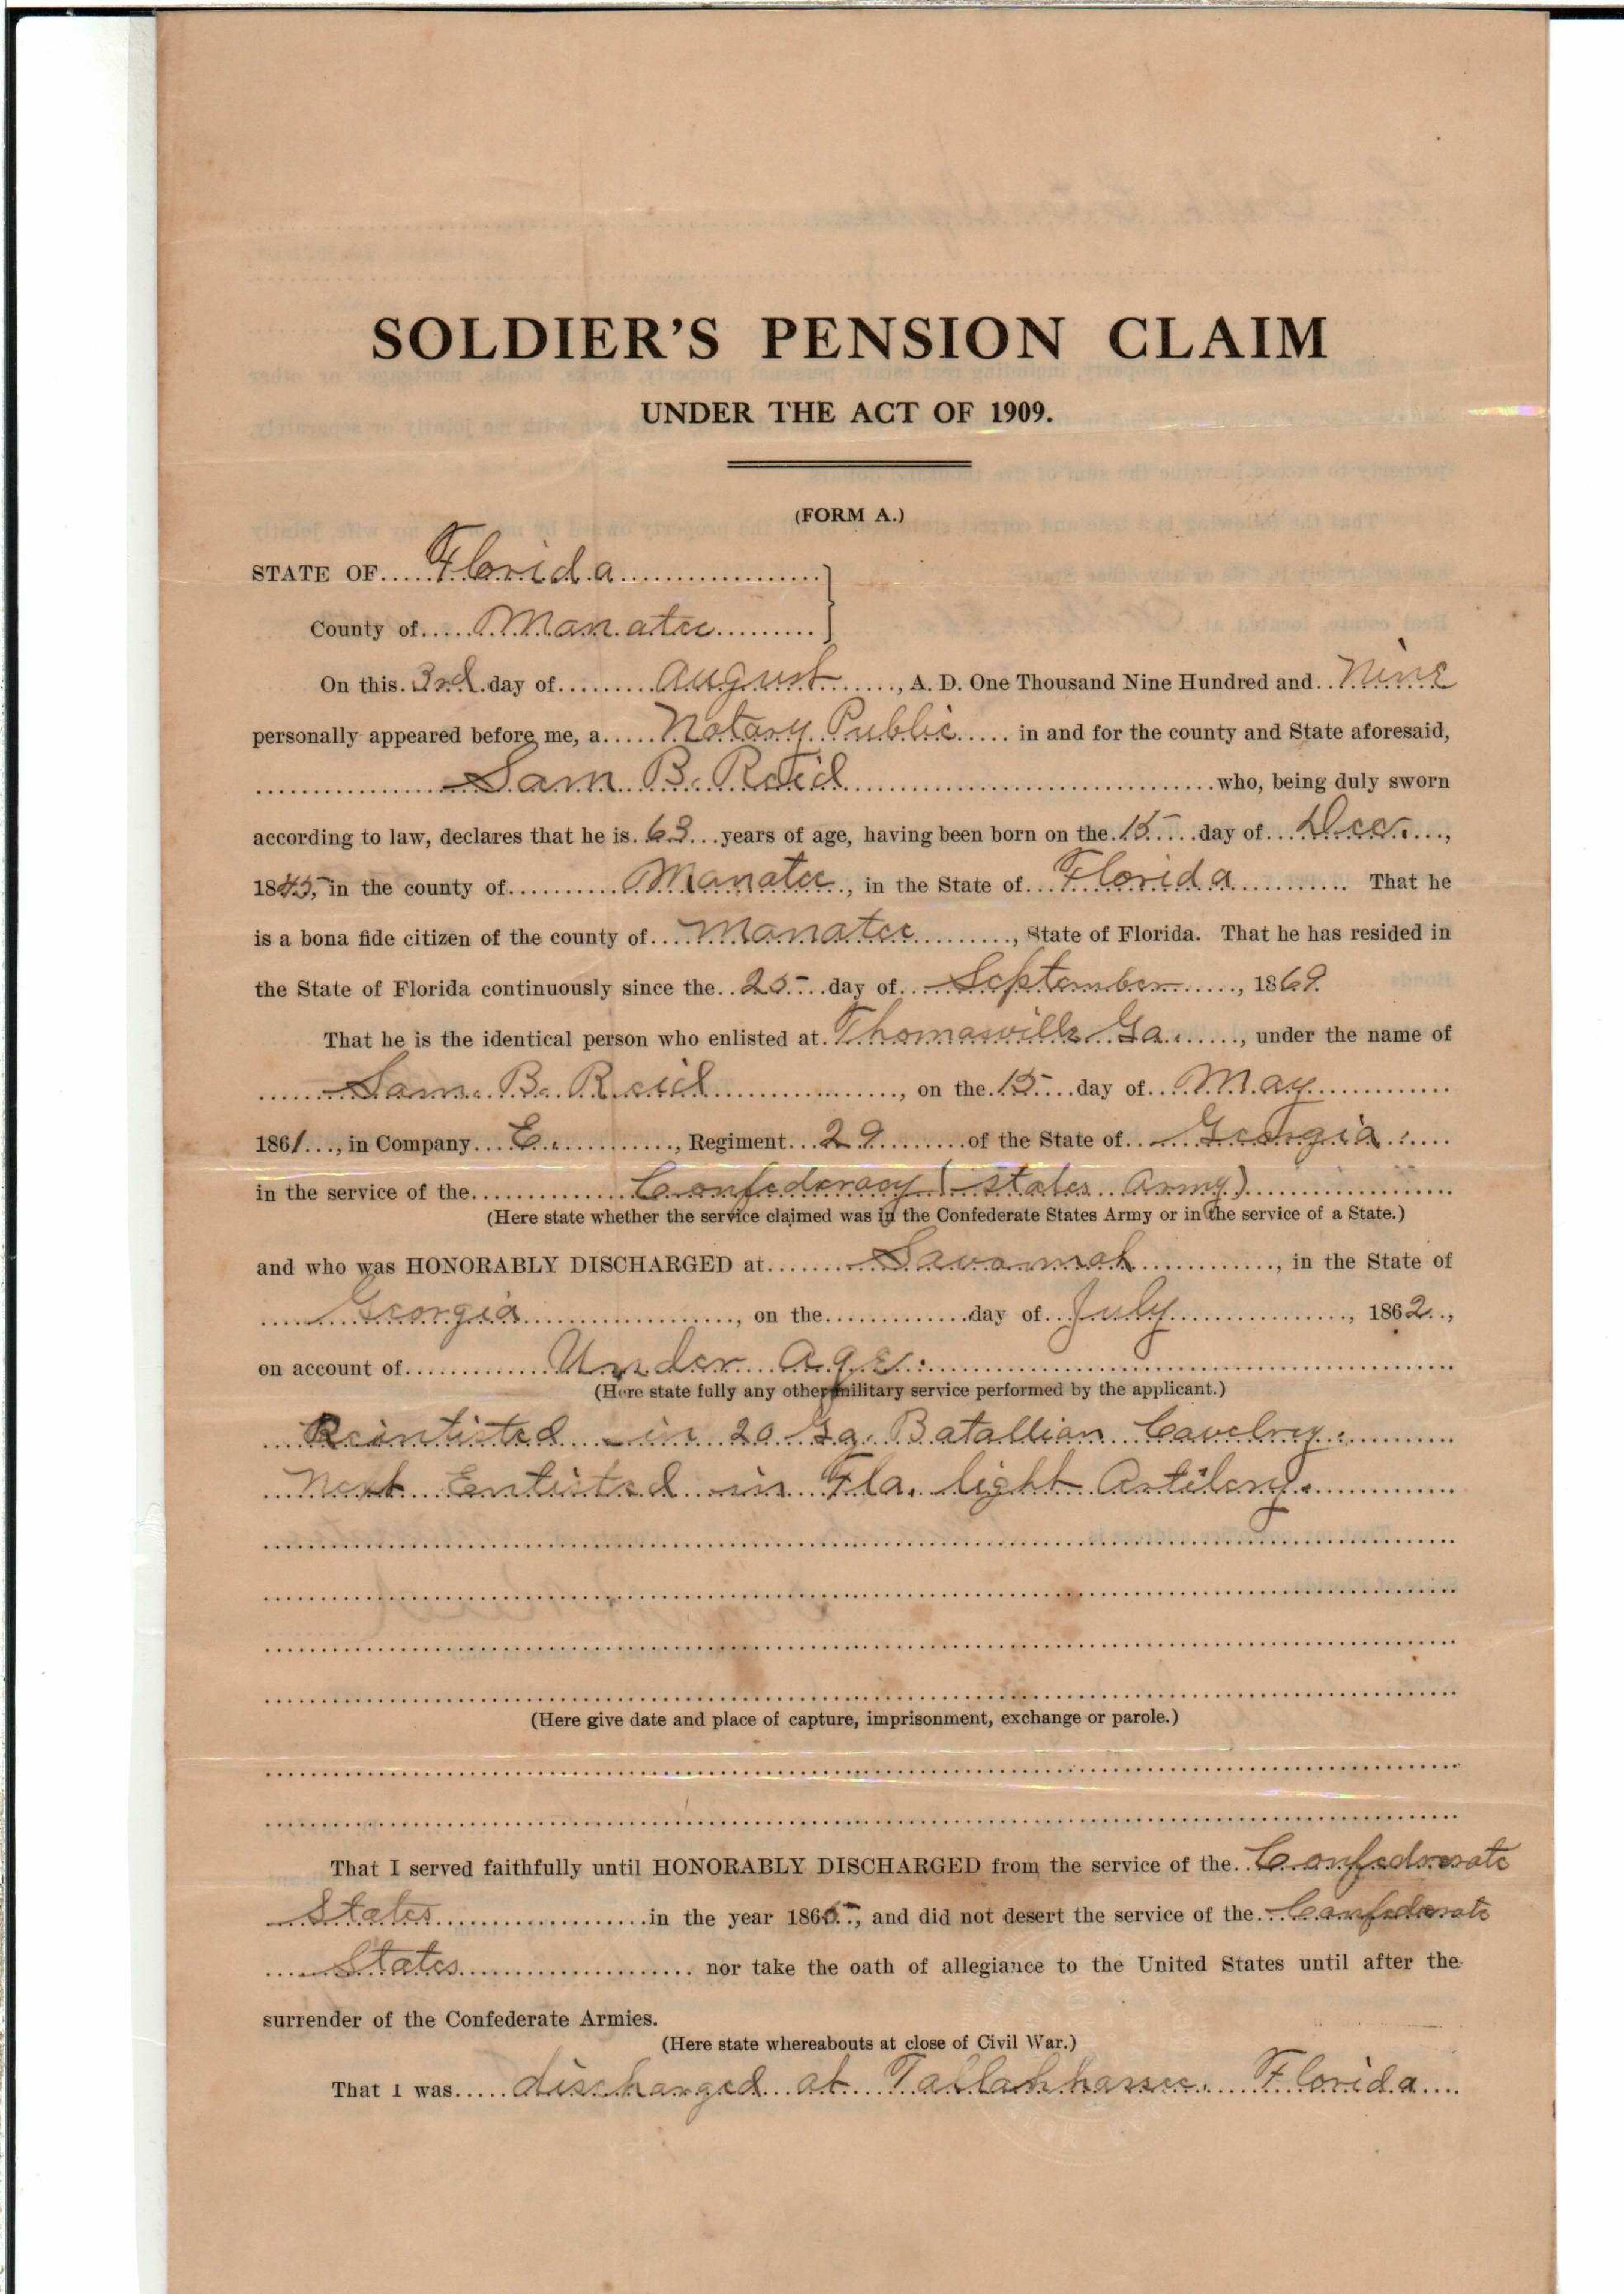 SOLDIER'S PENSION CLAIM
UNDER THE ACT OF 1909.
(FORM A.)
STATE OF Florida
County of Manatee
On this 3rd day of August, A. D. One Thousand Nine Hundred and Nine
personally appeared before me, a Notary Public in and for the county and State aforesaid,
Sam B. Reid who, being duly sworn
according to law, declares that he is 63 years of age, having been born on the 15 day of Dec.,
1845, in the county of Manatee, in the State of Florida That he
is a bona fide citizen of the county of Manatee, State of Florida. That he has resided in
the State of Florida continuously since the 25 day of September, 1869
That he is the identical person who enlisted at Thomasville Ga., under the name of
Sam. B. Reid, on the 15 day of May
1861, in Company E., Regiment 29 of the State of Georgia
in the service of the Confederacy (States Army)
(Here state whether the service claimed was in the Confederate States Army or in the service of a State.)
and who was HONORABLY DISCHARGED at Savannah, in the State of
Georgia, on the day of July, 1862,
on account of Under Age.
(Here state fully any other military service performed by the applicant.)
Reintisted in 20 Ga. Batallian Cavelry.
Next Entisted in Fla. light Artilery.
(Here give date and place of capture, imprisonment, exchange or parole.)
That I served faithfully until HONORABLY DISCHARGED from the service of the Confederate
States in the year 1865, and did not desert the service of the Confederate
States nor take the oath of allegiance to the United States until after the
surrender of the Confederate Armies.
(Here state whereabouts at close of Civil War.)
That I was discharged at Tallahhassee. Florida